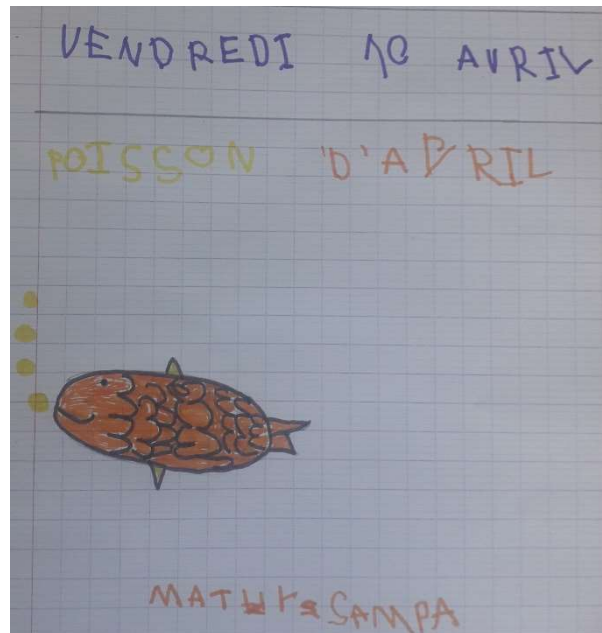 VENDREDI 10 AVRIL
POISSON D'AVRIL
SAMPA